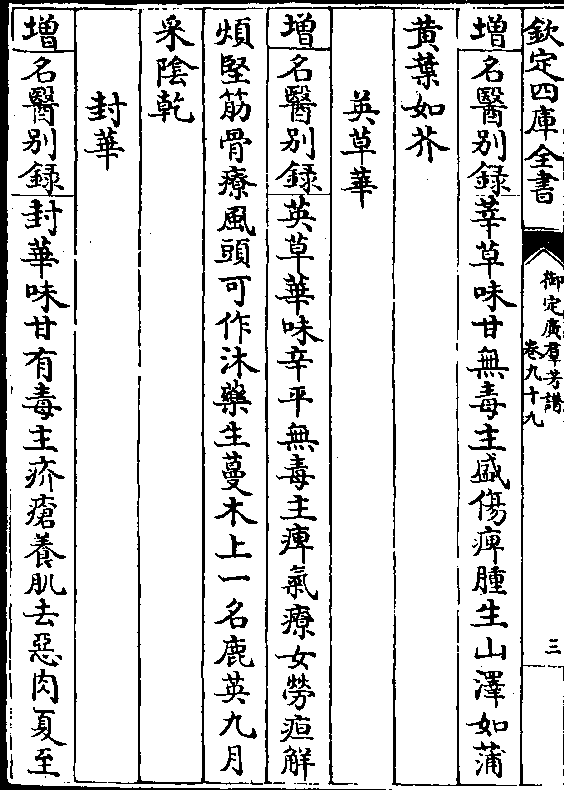 欽定四庫全書
御定廣群芳譜
卷九十九
三
增名醫别録莘草味甘無毒主盛傷痺腫生山澤如蒲
黄葉如芥
英草華
增名醫别録英草華味辛平無毒主痺氣療女勞疸解
煩堅筋骨療風頭可作沐藥生蔓木上一名鹿英九月
采陰乾
封華
增名醫别録封華味甘有毒主疥瘡養肌去惡肉夏至